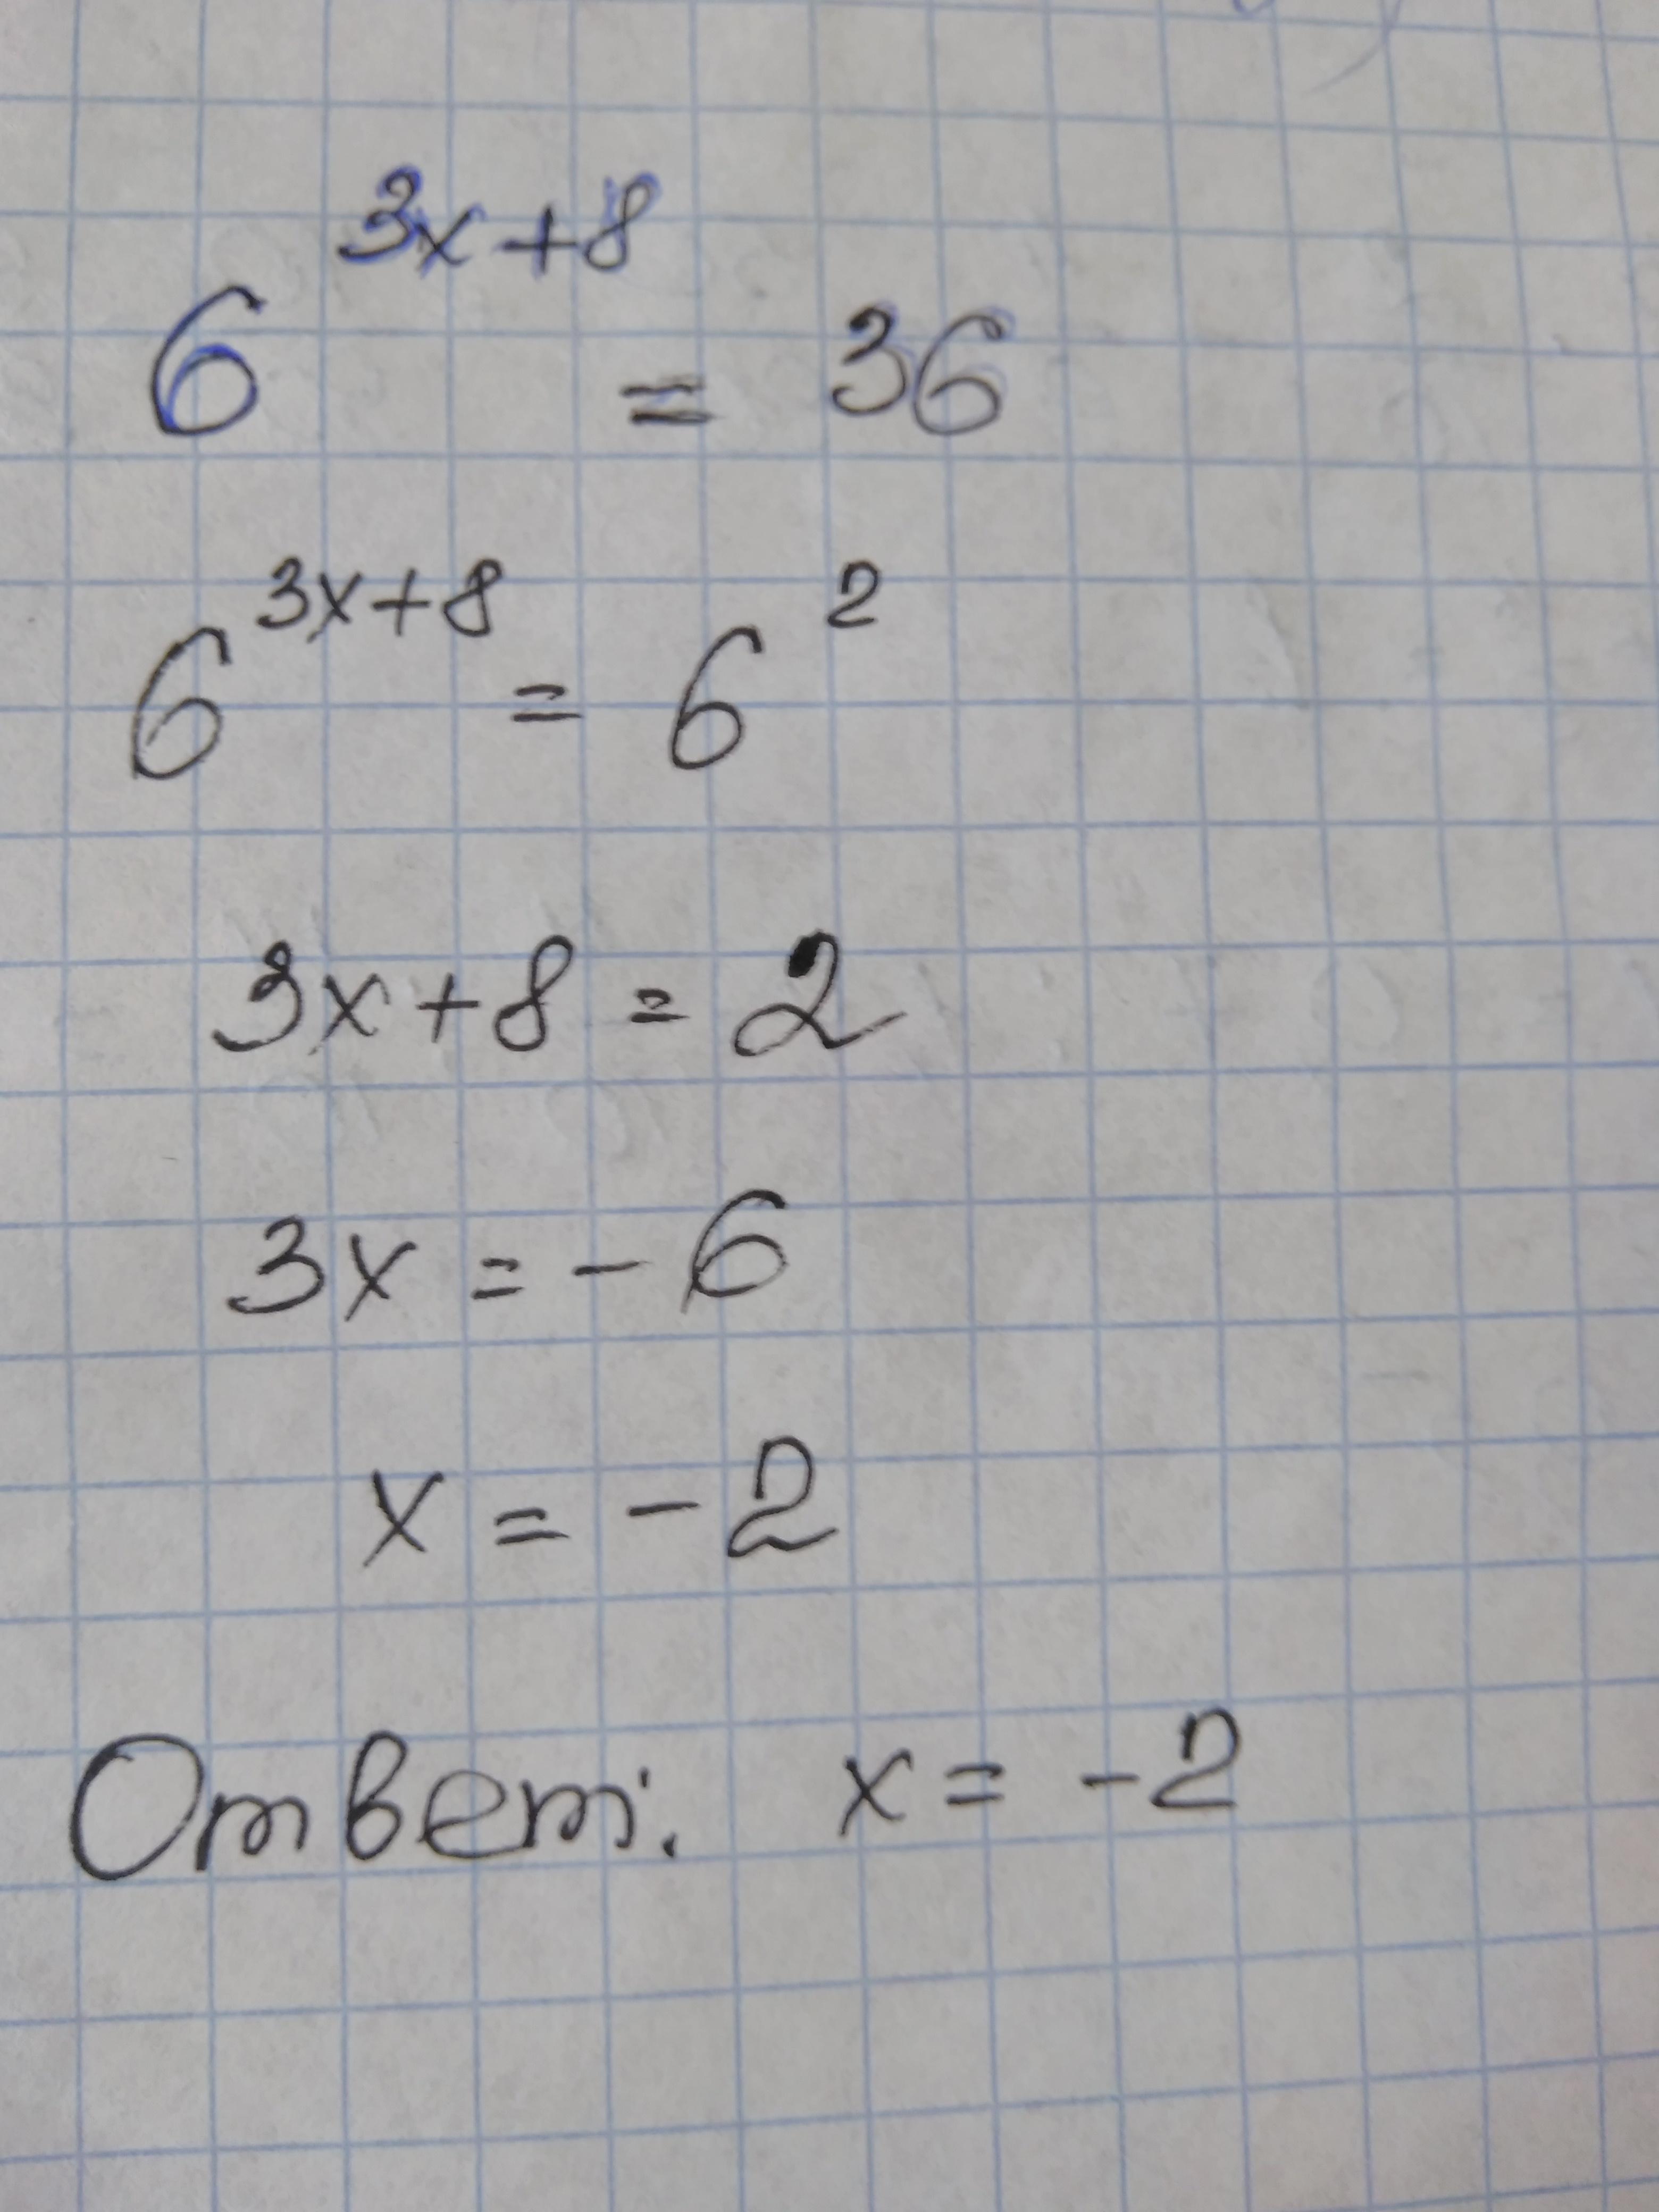 6^{3x+8} = 36
6^{3x+8} = 6^2
3x+8 = 2
3x = -6
x = -2
Ответ: x = -2